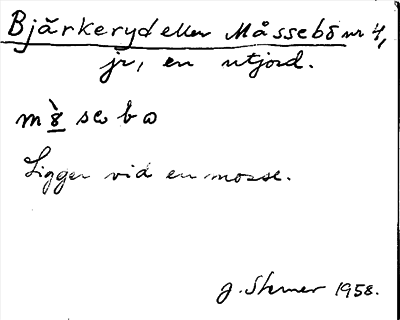 Bjärkeryd eller Måssebo nr 4,
jr, en utjord.
m8̀ se bω
Ligger vid en mosse.
J. Sterner 1958.